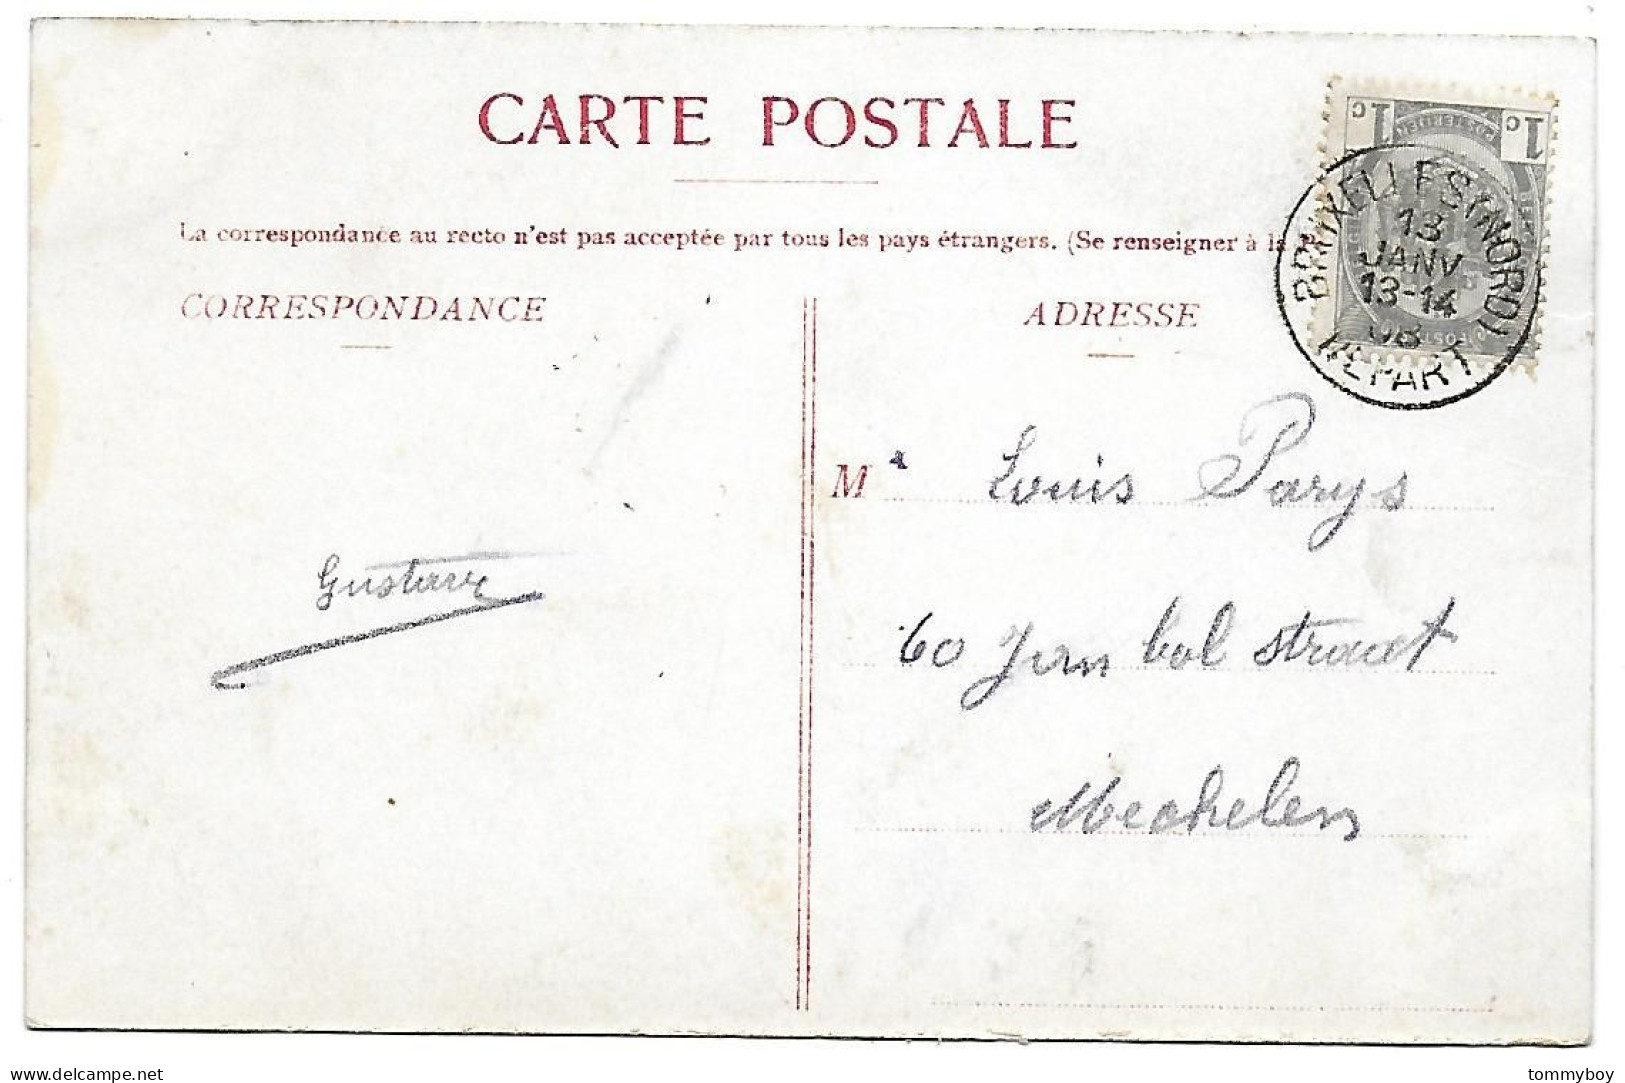 CARTE POSTALE
La correspondance au recto n'est pas acceptée par tous les pays étrangers. (Se renseigner à la
CORRESPONDANCE
ADRESSE
1c 1c
POSTERIJEN
BRUXELLES (NORD)
13
JANV
13-14
08
DEPART
M Louis Parys
Gustave
60 Jan bol straat
Mechelen
www.delcampe.net
tommyboy